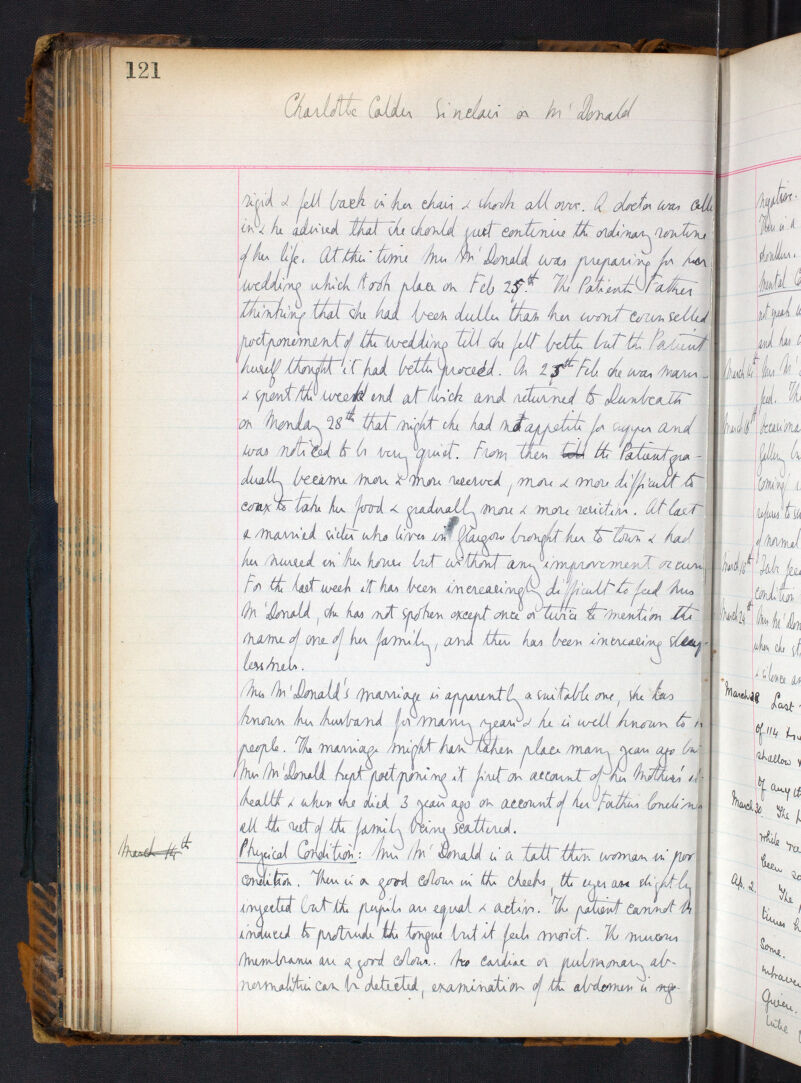 121
Charlotte Calder Sinclair or Mc Donald
rigid & fell back in her chair & shook all over. A doctor was calle
in & he advised that she should just continue the ordinary routine
of her life. At this time Mrs McDonald was preparing for her
wedding which took place on Feb 25th. The Patients Father
thinking that she had been duller than her wont counselled
postponement of the wedding till she felt better but the Patient
herself thought it had better proceed. On 25th Feb she was marri-
& spent the week end at Wick and returned to Dunbeath
on Monday 28th that night she had no appetite for supper and
was noticed to be very quiet. From then the Patient gra-
dually became more & more reserved, more & more difficult to
coax to take her food & gradually more & more resistive. At last
a married sister who lives in Glasgow brought her to town & had
her nursed in her house but without any improvement occurring
For the last week it has been increasingly difficult to feed Mrs
McDonald, she has not spoken except once or twice to mention the
name of one of her family, and there has been increasing sleep-
lessness.
Mrs McDonald's marriage is apparently a suitable one, she has
known her husband for many years & he is well known to h
people. The marriage might have taken place many years ago but
Mrs McDonald kept postponing it first on account of her Mother's ill-
health & when she died 3 years ago on account of her Fathers loneliness
all the rest of the family being scattered.
March 14th
Physical Condition: Mrs McDonald is a tall thin woman in poor
condition. There is a good colour in the cheeks, the eyes are slightly
injected but the pupils are equal & active. The patient cannot be
induced to protrude the tongue but it feels moist. The mucous
membranes are a good colour. No cardiac or pulmonary ab-
normalities can be detected, examination of the abdomen is nega-
negative.
There is a
shoulder.
Mental C
and has a
March 14th Mrs Mc
feel. The
March 16th
coming
refuses to
of normal
March 18th Tube fee
condition
March 24th Mrs McDon
when she
& silence
March 28 Last
of 114
shallow
of any
March 30 The
while
been so
Ap. 2 The
times
Some.